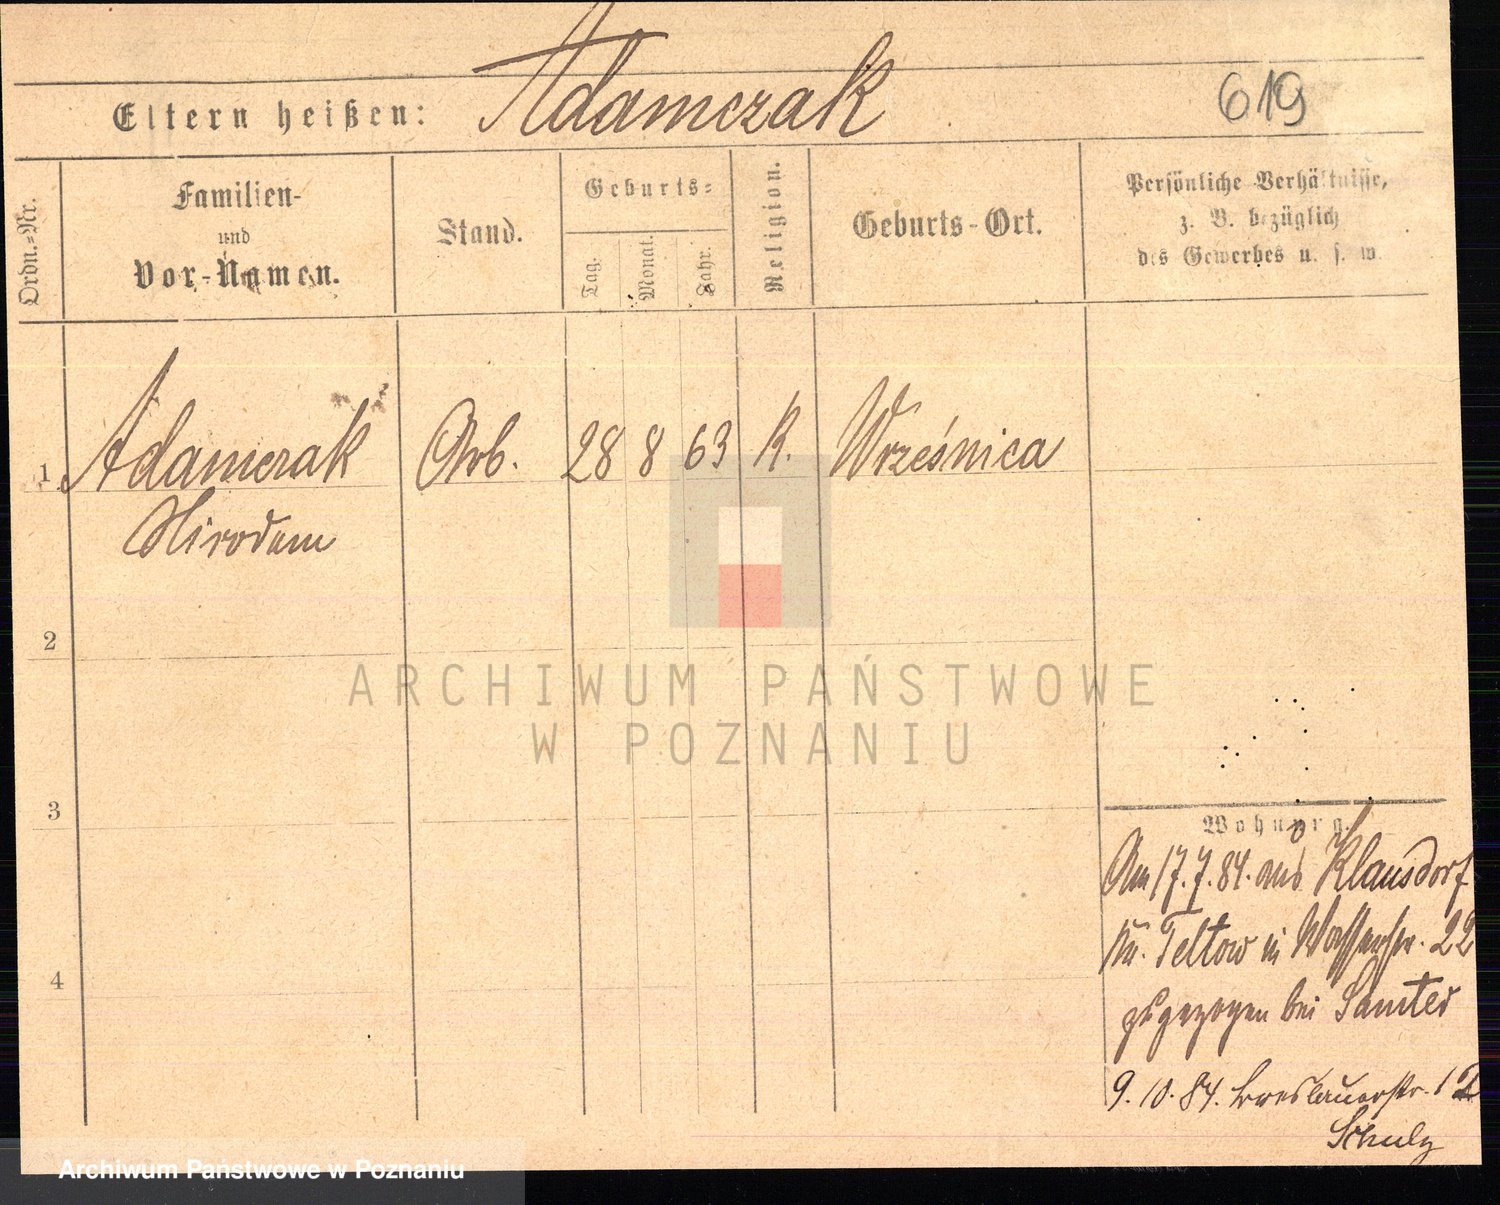 Eltern heißen: Adamczak 619
Ordn.=Nr.
Familien-
und
Vor-Namen.
Stand.
Geburts=
Tag.
Monat.
Jahr.
Religion.
Geburts-Ort.
Persönliche Verhältnisse,
z. B. bezüglich
des Gewerbes u. s. w.
1. Adamczak Arb. 28 8 63 K. Wrześnica
2
ARCHIWUM PAŃSTWOWE
W POZNANIU
3
4
Wohnung.
Am 17.7.84. aus Klausdorf
Kr. Teltow in Wasserstr. 22
zugezogen bei Samter
9. 10. 84. Breslauerstr. 12
Schulz
Archiwum Państwowe w Poznaniu